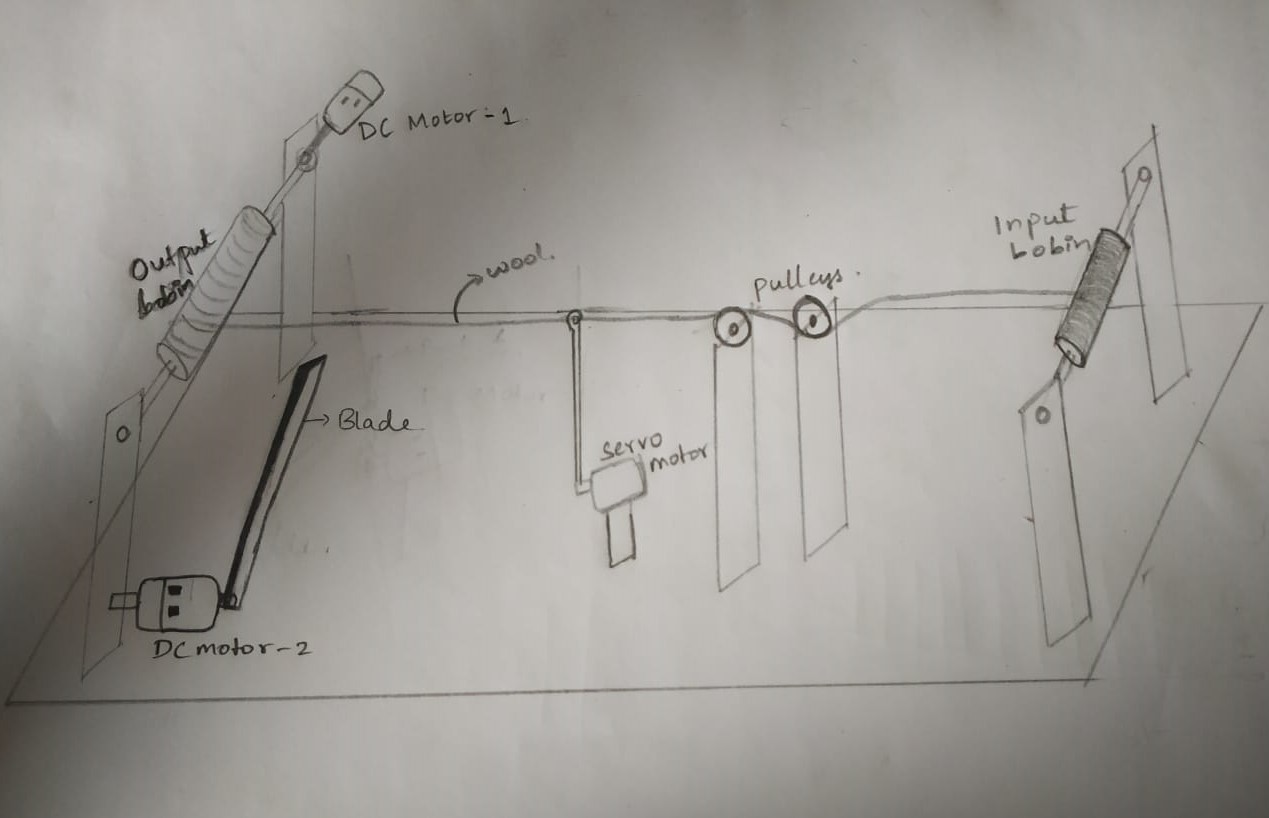 DC Motor-1
Output
bobin
wool.
pulleys.
Input
bobin
Blade
servo
motor
DC motor-2